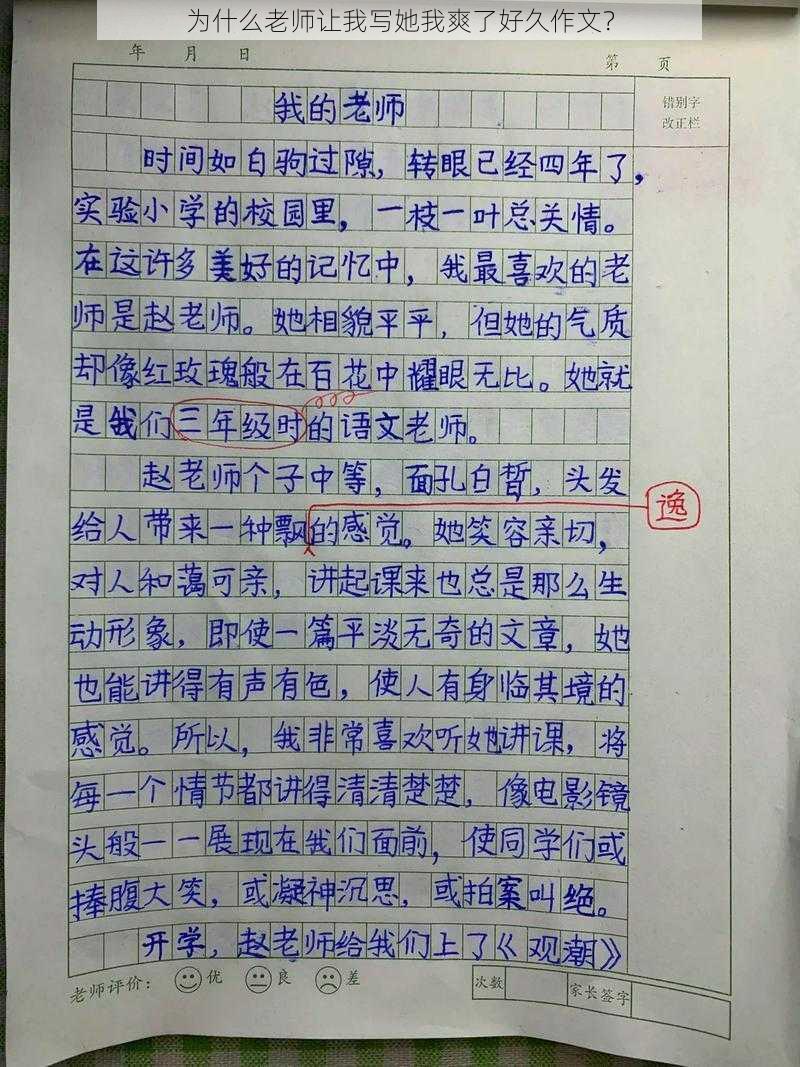 为什么老师让我写她我爽了好久作文？
年 月 日
第 页
错别字
改正栏
我的老师
时间如白驹过隙，转眼已经四年了，
实验小学的校园里，一枝一叶总关情。
在这许多美好的记忆中，我最喜欢的老
师是赵老师。她相貌平平，但她的气质
却像红玫瑰般在百花中耀眼无比。她就
是我们三年级时的语文老师。
赵老师个子中等，面孔白皙，头发
给人带来一种飘的感觉。她笑容亲切，
逸
对人和蔼可亲，讲起课来也总是那么生
动形象，即使一篇平淡无奇的文章，她
也能讲得有声有色，使人有身临其境的
感觉。所以，我非常喜欢听她讲课，将
每一个情节都讲得清清楚楚，像电影镜
头般一一展现在我们面前，使同学们或
捧腹大笑，或凝神沉思，或拍案叫绝。
开学，赵老师给我们上了《观潮》
老师评价： 优 良 差
次数 家长签字